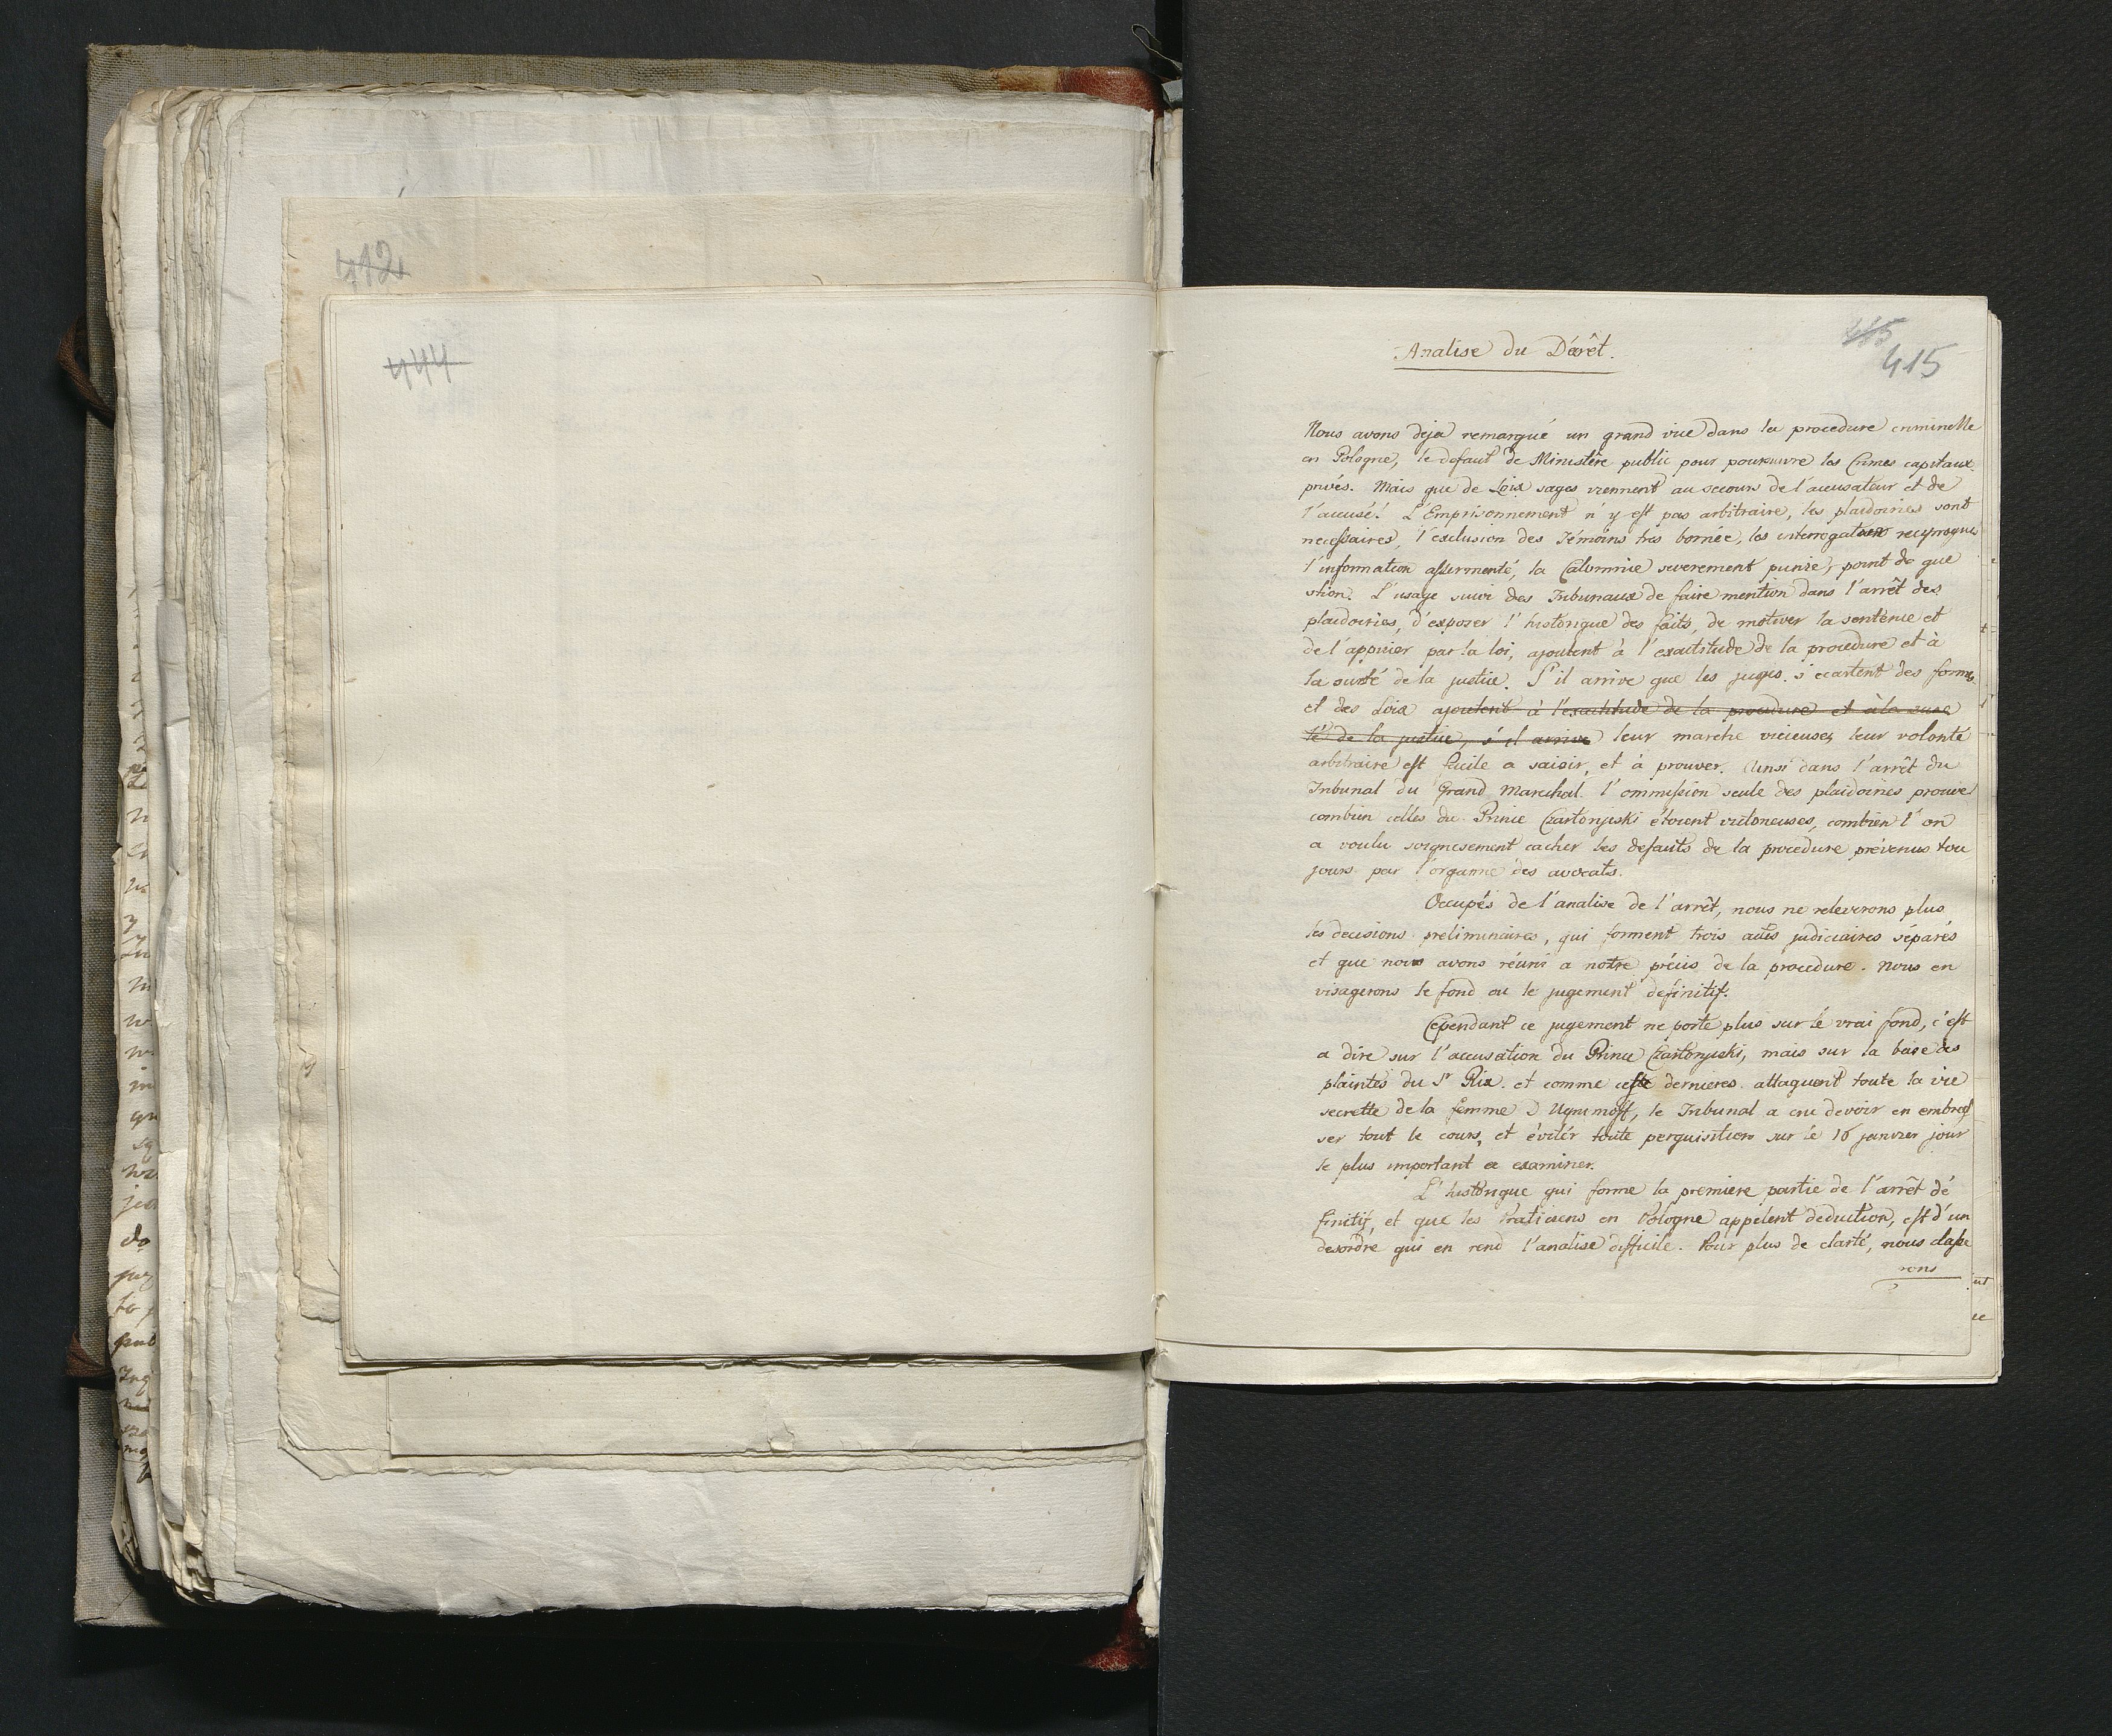 412
444
Analise du Décrêt.
415
415
Nous avons deja remarqué un grand vice dans la procedure criminelle
en Pologne, le defaut de Ministère public pour poursuivre les Crimes capitaux
privés. Mais que de Loix sages viennent au secours de l'accusateur et de
l'accusé! L'Emprisonnement n'y est pas arbitraire, les plaidoiries sont
necessaires, l'exclusion des Témoins très bornée, les interrogatoires reciproques
l'information assermenté, la Calomnie severement punie, point de que
stion. L'usage suivi des Tribunaux de faire mention dans l'arrêt des
plaidoiries, d'exposer l'historique des faits, de motiver la sentence et
de l'appuier par la loi, ajoutent à l'exactitude de la procedure et à
la sureté de la justice. S'il arrive que les juges s'ecartent des formes
et des Loix ajoutent à l'exactitude de la procedure et à la sure
té de la justice, s'il arrive leur marche vicieuse, leur volonté
arbitraire est facile a saisir, et à prouver. Ainsi dans l'arrêt du
Tribunal du Grand Marechal l'ommission seule des plaidoiries prouve
combien celles du Prince Czartoryski étoient victorieuses, combien l'on
a voulu soignesement cacher les defauts de la procedure prévenus tou
jours par l'organne des avocats.
Occupés de l'analise de l'arrêt, nous ne releverons plus
les decisions preliminaires, qui forment trois actes judiciaires séparés
et que nous avons réuni a notre précis de la procedure. Nous en
visagerons le fond ou le jugement definitif.
Cependant ce jugement ne porte plus sur le vrai fond, c'est
a dire sur l'accusation du Prince Czartoryski, mais sur la base des
plaintes du Sr Rix. et comme ces dernieres attaquent toute la vie
secrette de la femme d'Ugrumoff, le Tribunal a cru devoir en embras
ser tout le cours, et évitér toute perquisition sur le 16 janvier jour
le plus important a examiner.
L'historique qui forme la premiere partie de l'arrêt dé
finitif, et que les Praticiens en Pologne appelent deduction, est d'un
desordre qui en rend l'analise difficile. Pour plus de clarté, nous classe
rons